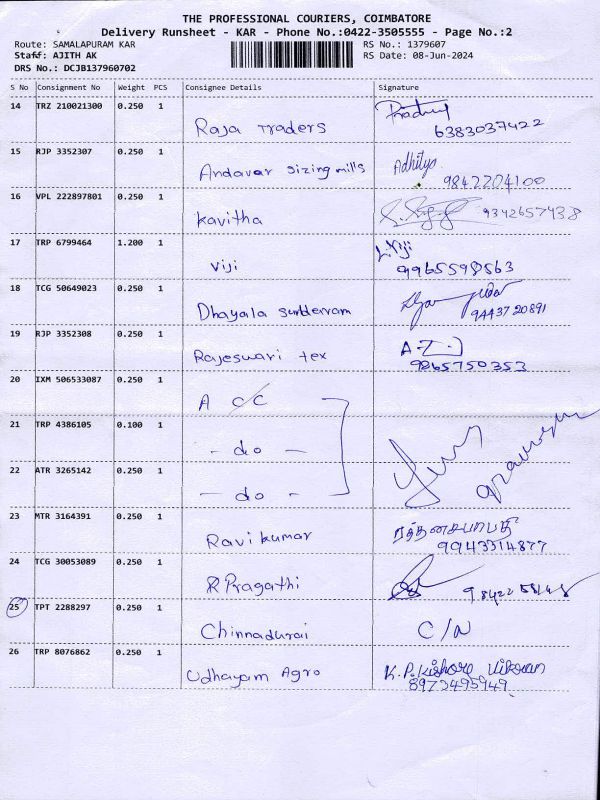 THE PROFESSIONAL COURIERS, COIMBATORE
Delivery Runsheet - KAR - Phone No.:0422-3505555 - Page No.:2
Route: SAMALAPURAM KAR
RS No.: 1379607
Staff: AJITH AK
RS Date: 08-Jun-2024
DRS No.: DCJB137960702
S No Consignment No Weight PCS Consignee Details Signature
14 TRZ 210021300 0.250 1
Raja traders 6383037422
15 RJP 3352307 0.250 1 Adhitya
Andavar sizing mills 9842204100
16 VPL 222897801 0.250 1
Kavitha 9342657438
17 TRP 6799464 1.200 1 L.Viji
Viji 9965598563
18 TCG 50649023 0.250 1
Dhayala 9443720891
19 RJP 3352308 0.250 1
Rajeswari tex 9865750353
20 IXM 506533087 0.250 1
A CC
21 TRP 4386105 0.100 1
- do -
22 ATR 3265142 0.250 1
- do -
23 MTR 3164391 0.250 1
Ravikumar 9943314877
24 TCG 30053089 0.250 1
Pragathi
25 TPT 2288297 0.250 1
Chinnadurai C/N
26 TRP 8076862 0.250 1
Udhayam Agro K.P.Kishore
8973495949